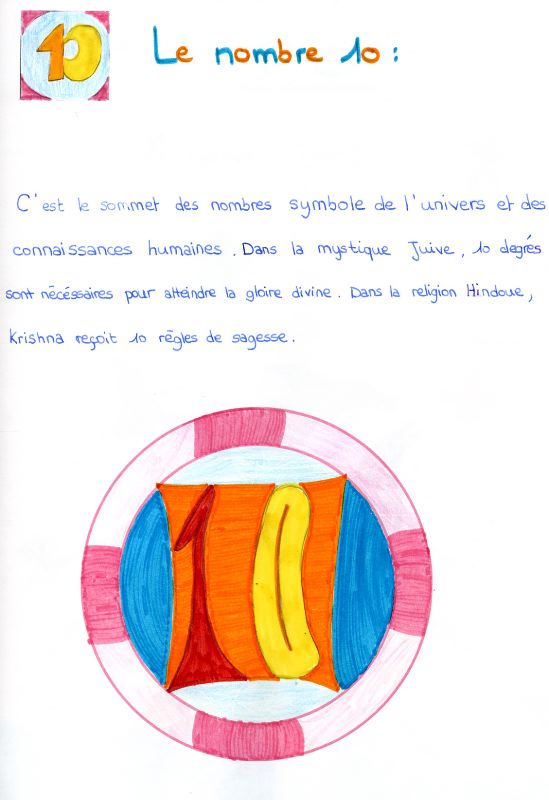 10
Le nombre 10 :
C'est le sommet des nombres symbole de l'univers et des
connaissances humaines. Dans la mystique Juive, 10 degrés
sont nécéssaires pour atteindre la gloire divine. Dans la religion Hindoue,
Krishna reçoit 10 règles de sagesse.
10